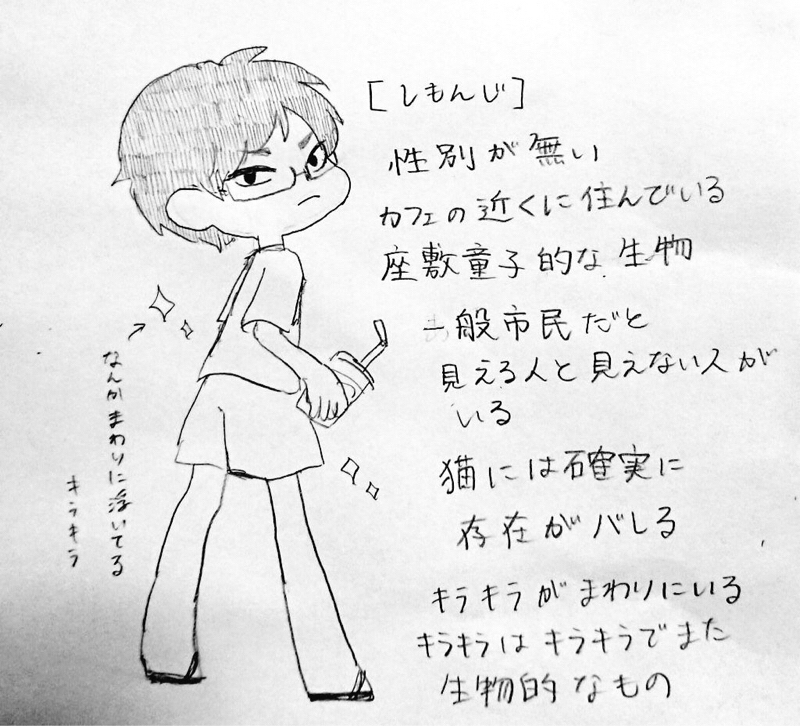 [しもんじ]
性別が無い
カフェの近くに住んでいる
座敷童子的な生物
一般市民だと
見える人と見えない人が
いる
猫には確実に
存在がバレる
キラキラがまわりにいる
キラキラはキラキラでまた
生物的なもの
なんかまわりに浮いてる
キラキラ